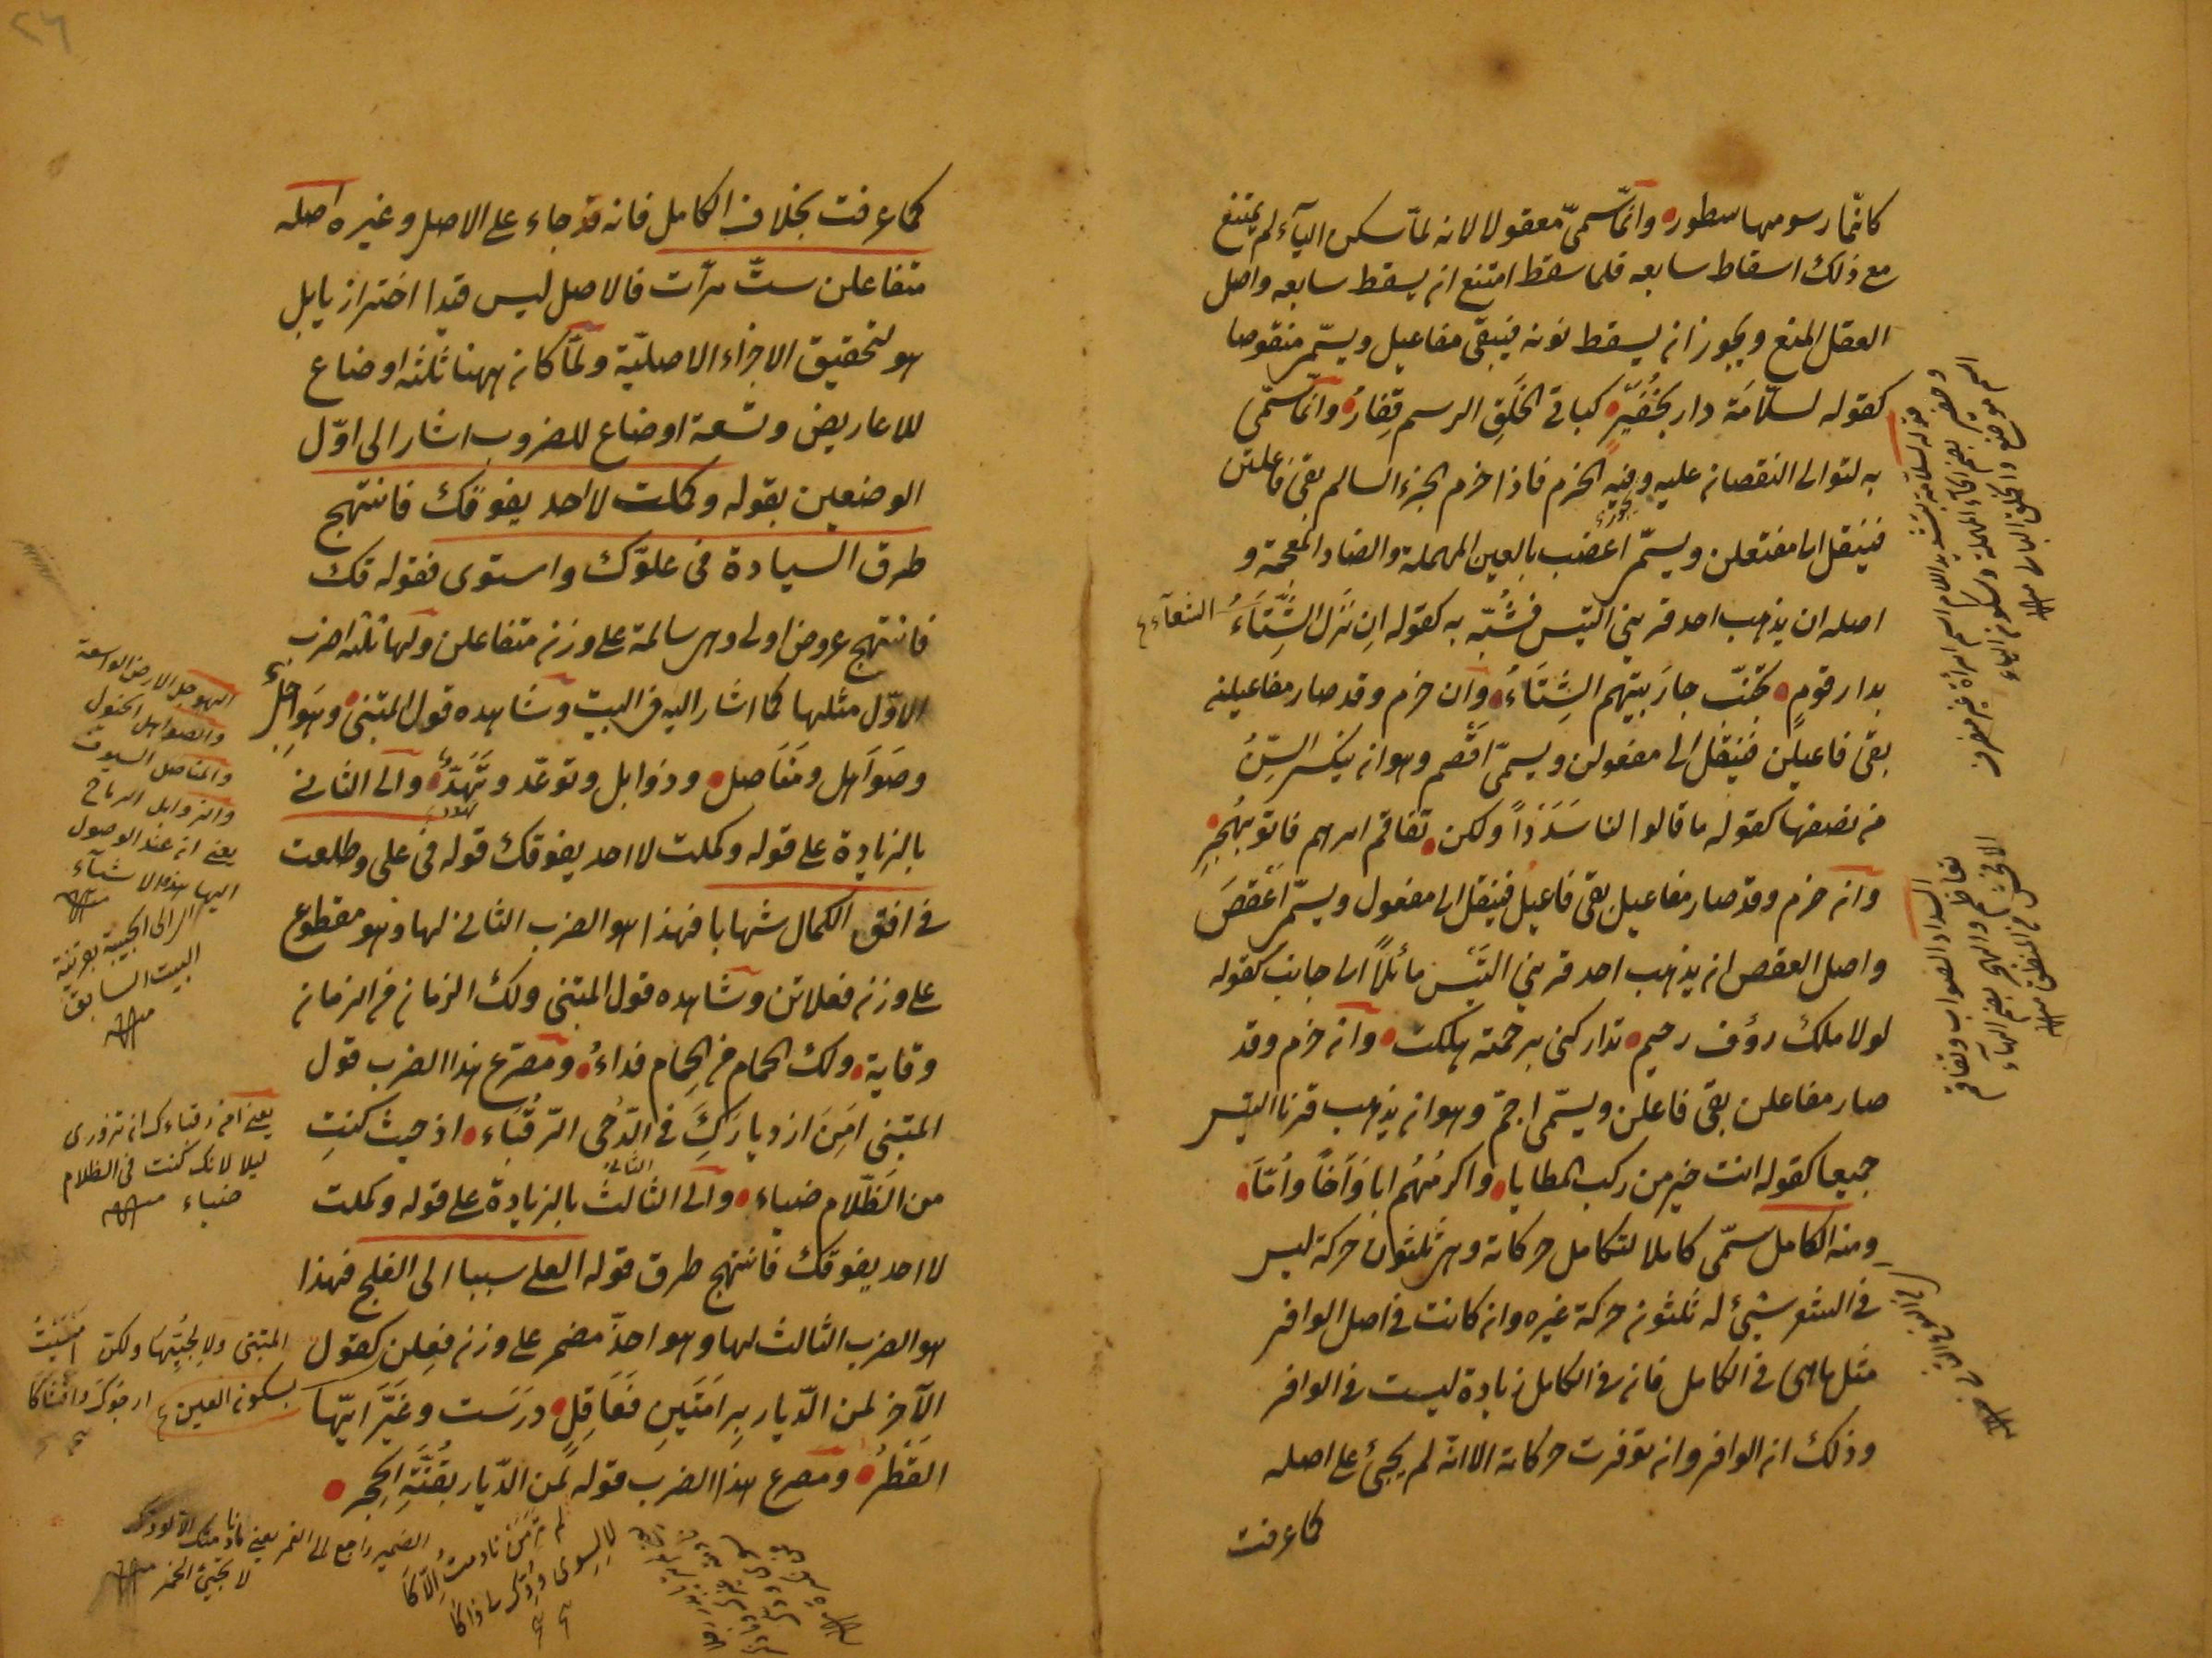 كانّما رسومها سطور وانّما سمّى معقولا لانه لمّا سكن اليآء لم يمتنع
مع ذلك اسقاط سابعه فلما سقط امتنع ان يسقط سابعه واصل
العقل المنع ويجوز ان يسقط نونه فيبقى مفاعيل ويسمّى منقوصا
كقوله لسلّامَة دار بحَفُيَّرٍ كباقى الخَلَقِ الرسم قِفارُ وانّما سمّى
به لتوالى النقصان عليه وفيه الخزم فاذا خزم الجزء السالم بقى فاعلتن
فينقل الى مفتعلن ويسمّى اعضب بالعين المهملة والضاد المعجمة و
اصله ان يذهب احد قرينى التيس فشُبّه به كقوله ان نَزَل الشِّتَاَءُ
بدار قومٍ تجنّب جارَ بيتهم الشِتَاءُ وان خزم وقد صار مفاعيلن
بقى فاعيلن فينقل الى مفعولن ويسمّى اقصم وهو ان ينكسر السِّنُ
من نصفها كقوله ما قالوا لنا سَدَدًا ولكن تفاقم امرهم فاتوا بهُجرِ
وان خزم وقد صار مفاعيل بقى فاعيل فينقل الى مفعول ويسمّى اعقصَ
واصل العقص ان يذهب احد قرينى التَيْس مائلاً الى جانب كقوله
لولا ملك رؤف رحيم تداركنى برحمته هلكت وان خزم وقد
صار مفاعلن بقى فاعلن ويسمّى اجمّ وهو ان يذهب قرنا التيس
جميعا كقوله انت خير من ركب المطايا واكرمُهُم ابا وَاَخًا وأمّاَ
ومنه الكامل سمّى كاملا لتكامل حركاته وهى ثلثون حركة ليس
فى الشعر شيئ له ثلثون حركة غيره وان كانت فى اصل الوافر
مثل ماهى فى الكامل فان فى الكامل زيادة ليست فى الوافر
وذلك ان الوافر وان توفرت حركاته الا انّه لم يجيئ على اصله
كما عرفت
٢٦
كما عرفت بخلاف الكامل فانه قد جاء على الاصل وغيره اصله
متفاعلن ستّ مرّات فالاصل ليس قيدا احترازيا بل
هو لتحقيق الاجزاء الاصليّة ولمّا كان ههنا ثلثه اوضاع
للاعاريض وتسعة اوضاع للضروب اشار الى اوّل
الوضعين بقوله وكملت لا احد يفوقك فانتهج
طرق السيادة فى علوّك واستوى فقوله قك
فانتهج عروض اولى وهى سالمة على وزن متفاعلن ولها ثلثه اضرب
الاوّل مثلها كما اشار اليه فى البيت وشاهده قول المتنبى وهَوَاجل
وصَوَاهل ومَنَاصل وذوابل وتوعّد وتَهَدُّد والى الثانى
بالزيادة على قوله وكملت لا احد يفوقك قوله فى على وطلعت
فى افق الكمال شهابا فهذا هو الضرب الثانى لها وهو مقطوع
على وزن فعلاتن وشاهده قول المتنبى ولك الزمان من الزمان
وقاية ولك الحمام من الحِمام فداءُ ومصرع هذا الضرب قول
المتنبى اَمِنَ ازديارَكَِ فى الدُّجى الرّقُبَاء اذ حيث كنتِ
من الظّلام ضياء والى الثالث بالزيادة على قوله وكملت
لا احد يفوقك فانتهج طرق قوله العلى سببا الى الفلج فهذا
هو الضرب الثالث لها وهو احذّ مضمر على وزن فعلن كقول
الآخر لمن الدّيار بِرامَتَينِ فَعَاقِلٍ دَرَسَت وغَيَّرَ ايَها
القَطْرُ ومصرع هذا الضرب قوله لمن الدّيار بقُنَّةِ الحِجر
الهوجل الارض الواسعة
والصواهل الخيول
والمناصل السيوف
والذوابل الرماح
يعنى ان عند الوصول
اليها هذه الاشيآء
البيت السابق
ليلا لانك كنت فى الظلام
ضياء
بسكون العين